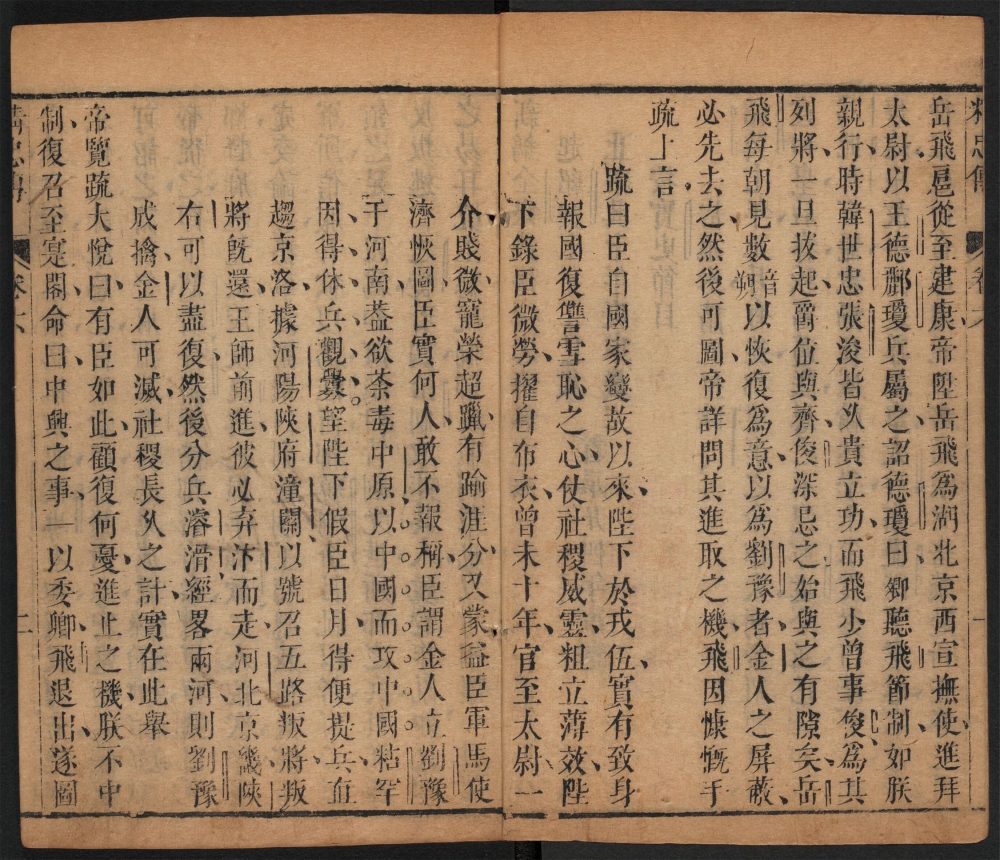 精忠傳
卷六
一
岳飛扈從至建康帝陞岳飛爲湖北京西宣撫使進拜
太尉以王德酈瓊兵屬之詔德瓊曰卿聽飛節制如朕
親行時韓世忠張浚皆以貴立功而飛少曾事俊爲其
列將一旦拔起爵位與齊俊深忌之始與之有隙矣岳
飛每朝見數音朔以恢復爲意以爲劉豫者金人之屏蔽
必先去之然後可圖帝詳問其進取之機飛因慷慨手
疏上言
疏曰臣自國家變故以來陛下於戎伍實有致身
報國復讐雪恥之心仗社稷威靈粗立薄效陛
下錄臣微勞擢自布衣曾未十年官至太尉一
介賤微寵榮超躐有踰涯分又蒙益臣軍馬使
濟恢圖臣實何人敢不報稱臣謂金人立劉豫
于河南葢欲荼毒中原以中國而攻中國粘罕
因得休兵觀釁望陛下假臣日月得便提兵直
趨京洛據河陽陝府潼關以號召五路叛將叛
將旣還王師前進彼必弃汴而走河北京畿陝
右可以盡復然後分兵濬滑經畧兩河則劉豫
成擒金人可滅社稷長久之計實在此舉
帝覽疏大悅曰有臣如此顧復何憂進止之機朕不中
制復召至寢閤命曰中興之事一以委卿飛退出遂圖
精忠傳
卷六
二